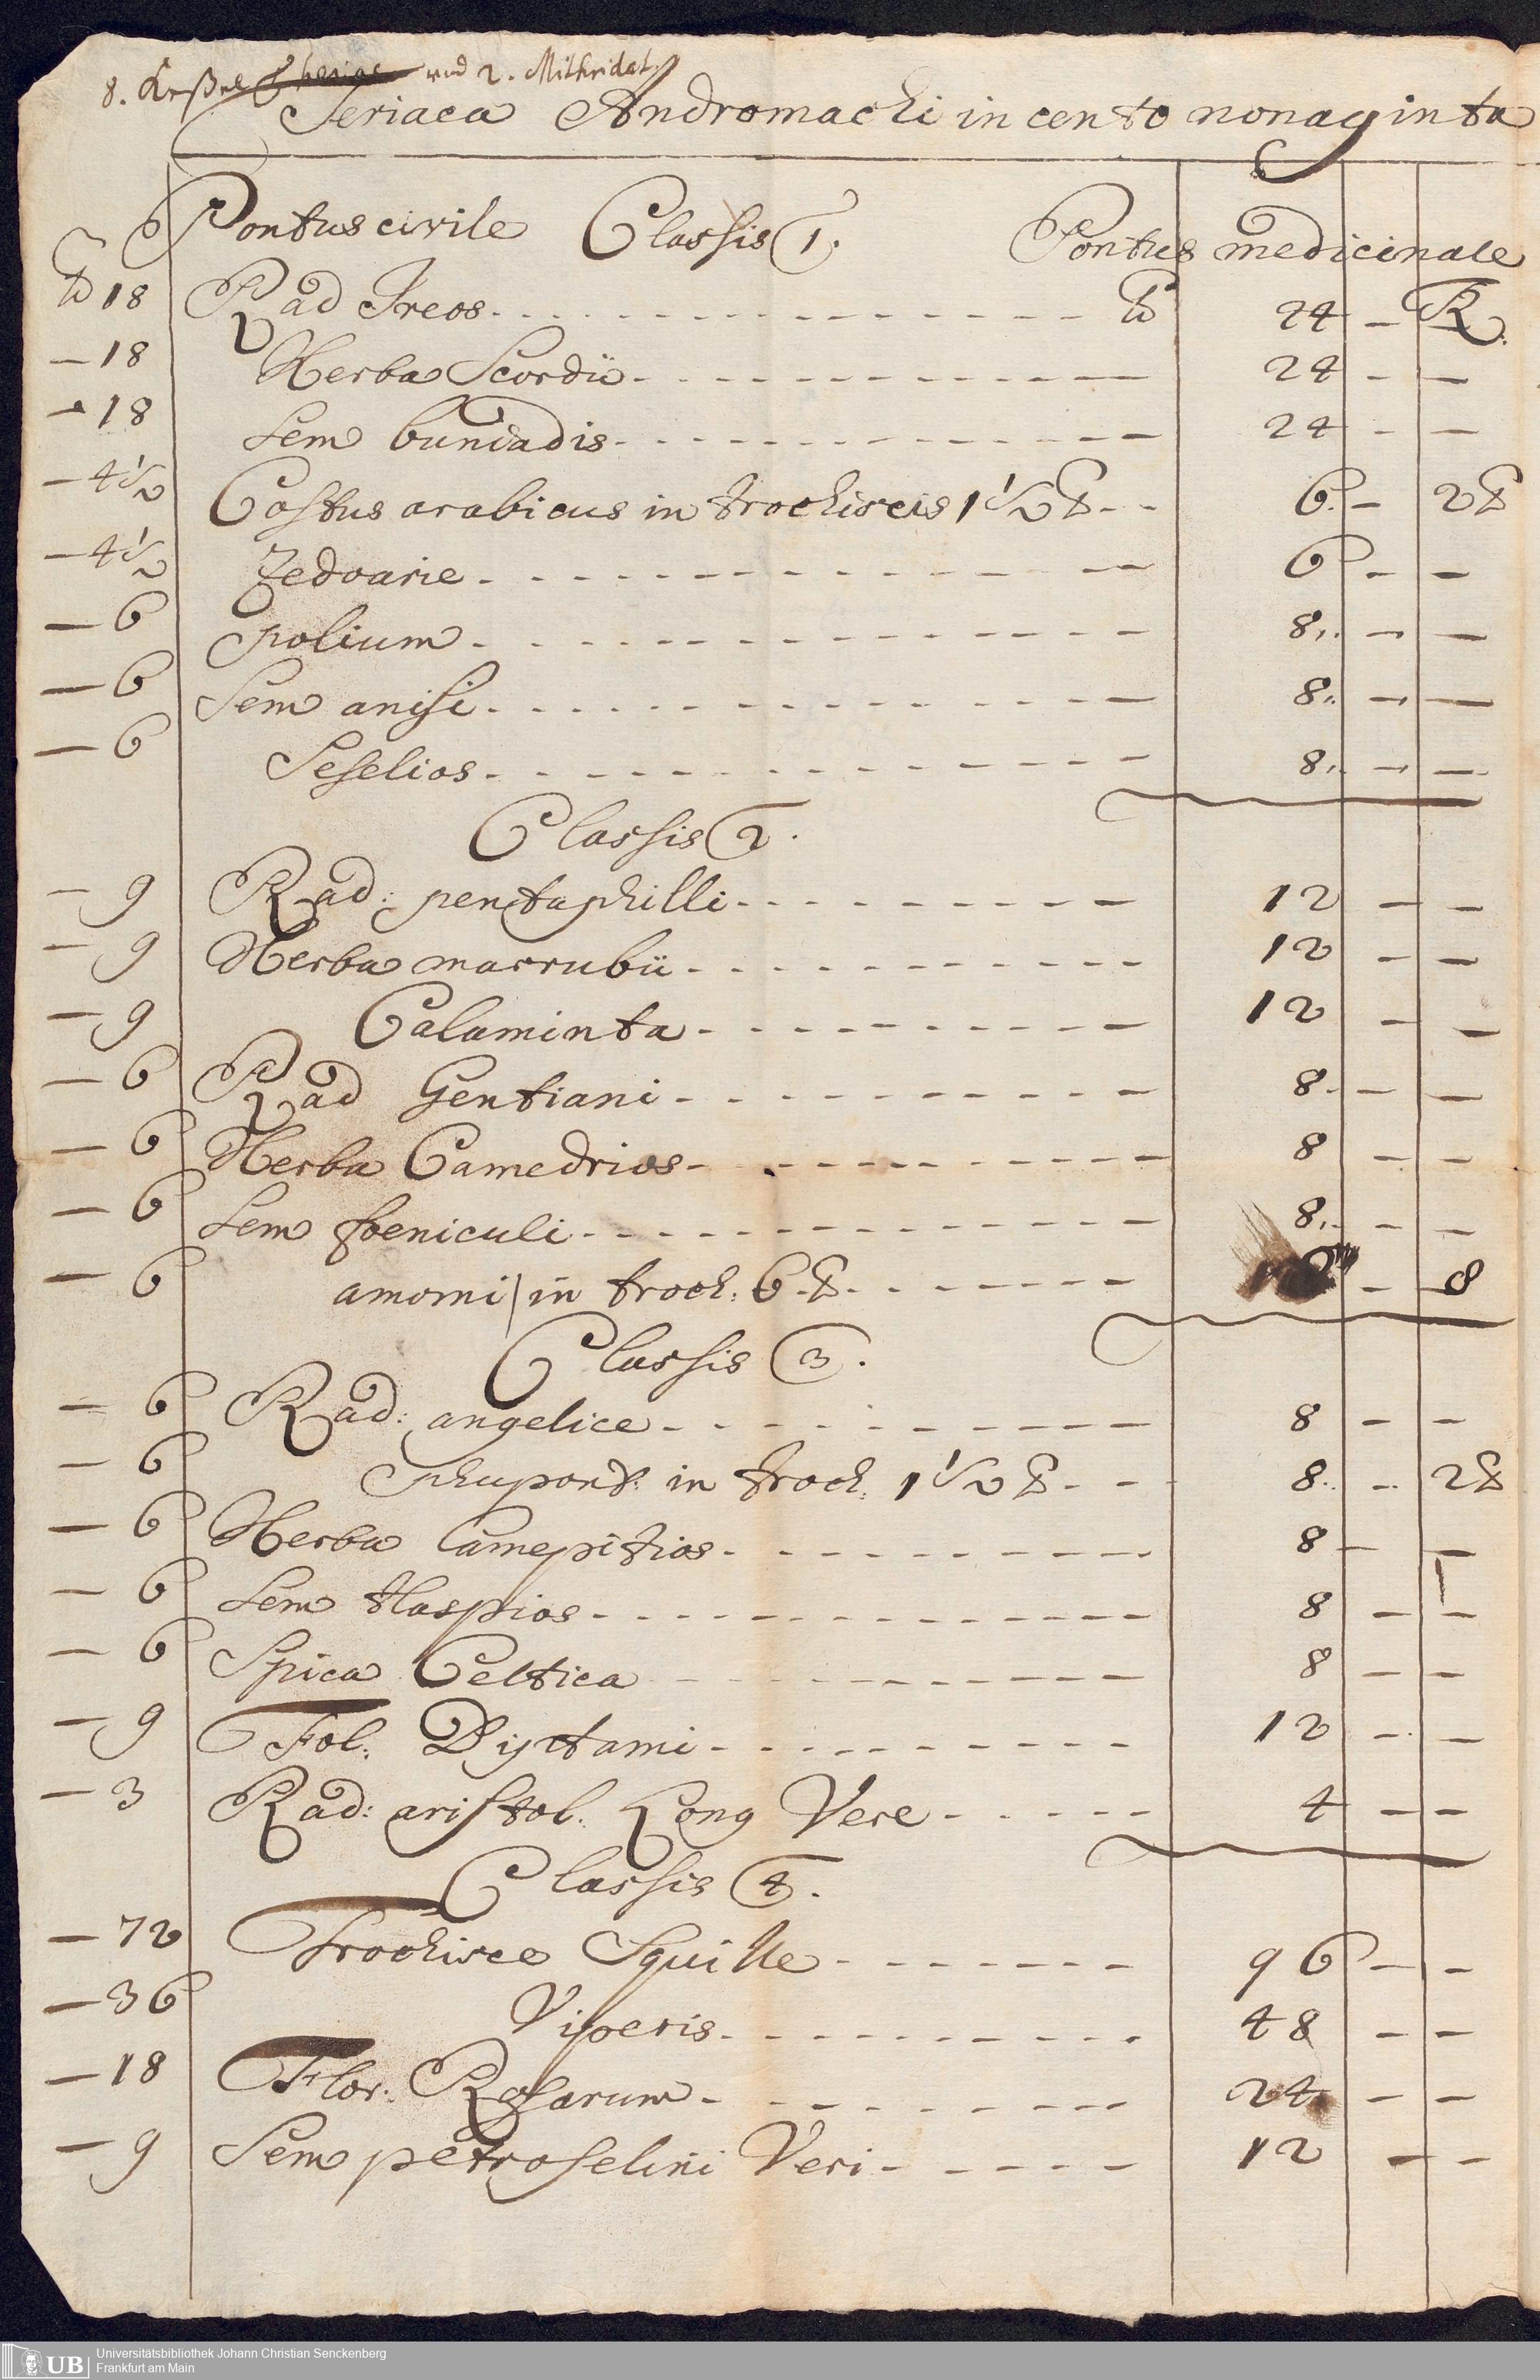 8. Keßel und 2. Mithridat.
Teriaca Andromachi in cento nonaginta
Pontus civile Classis 1. Pontus medicinale
℔ 18 Rad Ireos - - - ℔ 24 — R.
— 18 Herba Scordii - - - 24 — —
— 18 Sem buniadis - - - 24 — —
— 4 1/2 Costus arabicus in trochiscis 1 1/2 ℔ - - - 6 — 2 ℔
— 4 1/2 Zedoarie - - - 6 — —
— 6 polium - - - 8 — —
— 6 Sem anisi - - - 8 — —
— 6 Seselios - - - 8 — —
Classis 2.
— 9 Rad: pentaphilli - - - 12 — —
— 9 Herba marrubii - - - 12 — —
— 9 Calaminta - - - 12 — —
— 6 Rad Gentiani - - - 8 — —
— 6 Herba Camedrios - - - 8 — —
— 6 Sem foeniculi - - - 8 — —
— 6 amomi / in troch: 6 ℔ - - - — 8
Classis 3.
— 6 Rad: angelice - - - 8 — —
— 6 phupont. in troch: 1 1/2 ℔ - - - 8 — 2 ℔
— 6 Herba Camepitios - - - 8 — —
— 6 Sem thaspios - - - 8 — —
— 6 Spica Celtica - - - 8 — —
— 9 Fol. Dyctami - - - 12 — —
— 3 Rad: aristol. Long Vere - - - 4 — —
Classis 4.
— 72 Trochisce Squille - - - 96 — —
— 36 Viperis - - - 48 — —
— 18 Flor. Rosarum - - - 24 — —
— 9 Sem petroselini Veri - - - 12 — —
UB Universitätsbibliothek Johann Christian Senckenberg
Frankfurt am Main